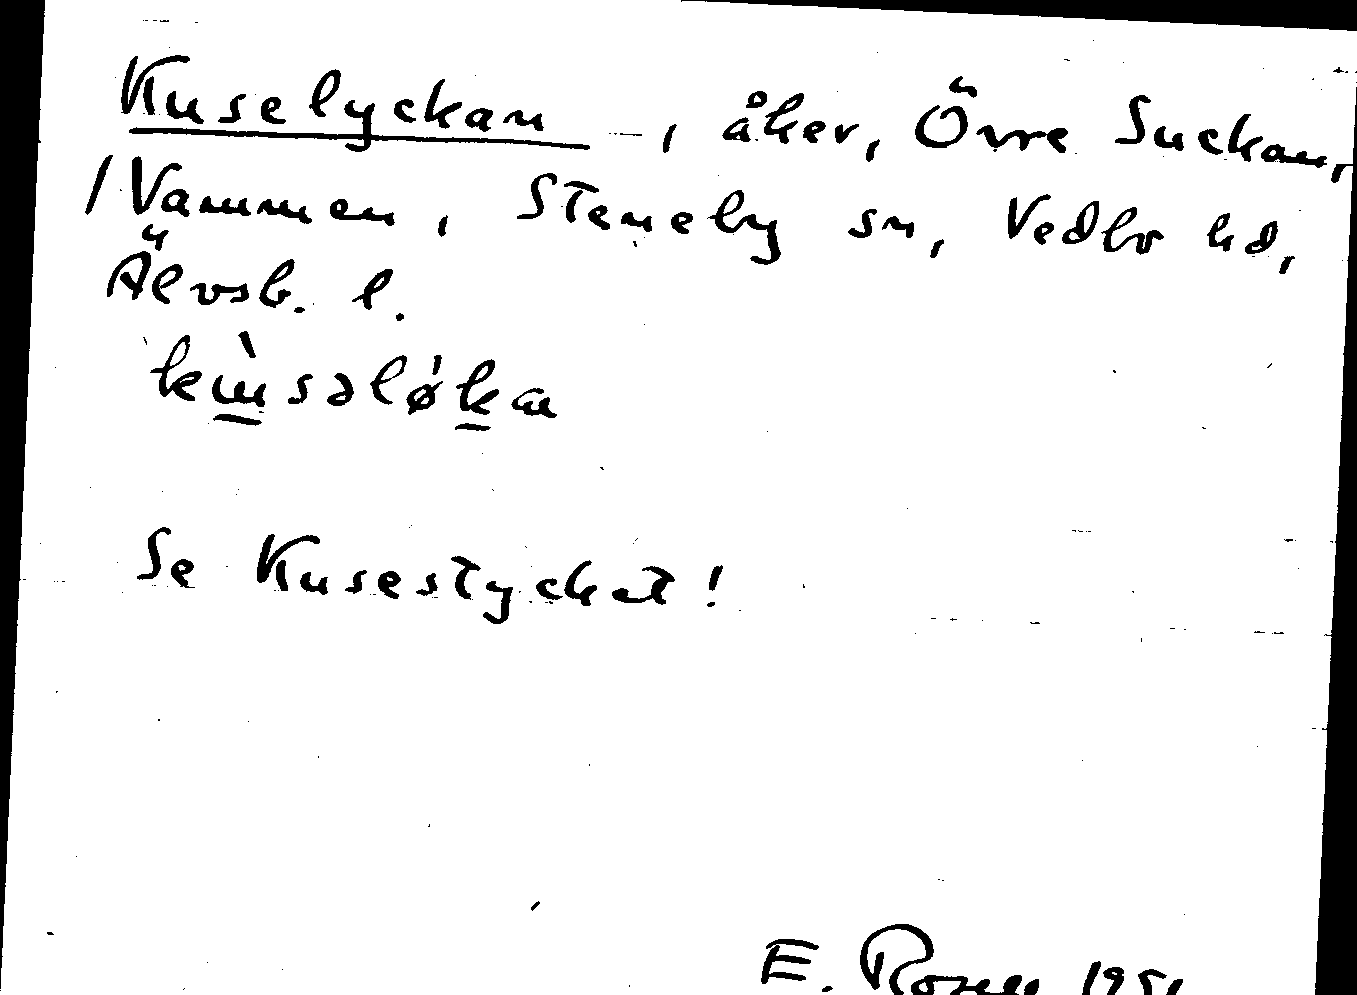 Kuselyckan —, åker, Övre Suckan,
/Vammen, Steneby sn, Vedbo hd,
Älvsb. l.
kɯ̀səløkan
Se Kusestycket!
E. Rosell 195